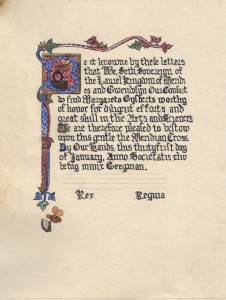 Be it knowne by these letters
that We, Seth Sovereign of
the Laurel Kingdom of Meridi
es and Gwendolyn Our Consort
do find Margareta Gylberts worthy
of honor for diligent efforts and
great skill in the Arts and Sciences
We are therefore pleased to bestow
upon this gentle the Meridian Cross.
By Our Hands, this thirtyfirst day
of January, Anno Societatis xliv
being mmix Gregorian.
Rex Regina